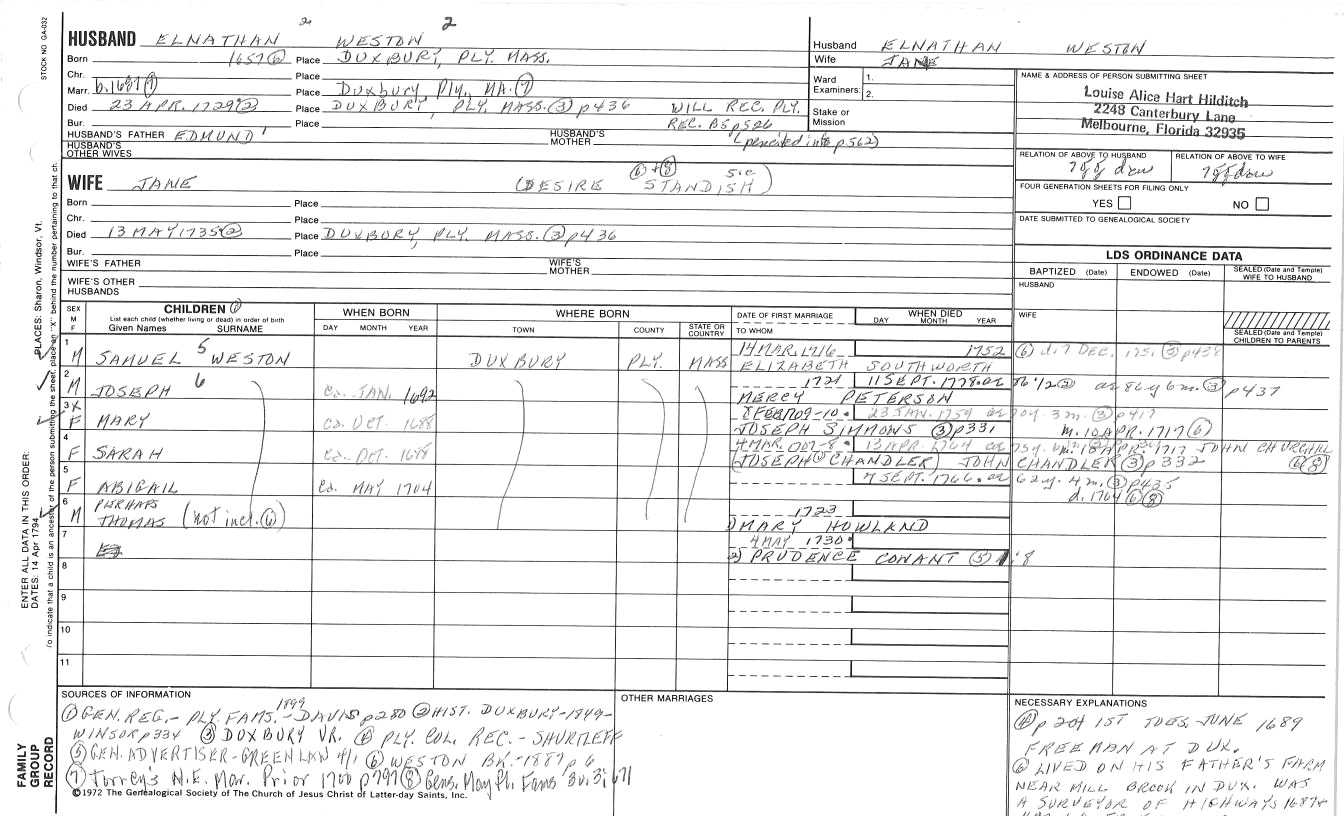 2
2
HUSBAND ELNATHAN WESTON
Born 1657⑥ Place DUXBURY, PLY. MASS.
Chr. Place
Marr. b.1687⑦ Place Duxbury, Ply., MA.⑦
Died 23 APR. 1729② Place DUXBURY, PLY. MASS.③ p436 WILL REC. PLY.
Bur. Place REC. B5 p526
HUSBAND'S FATHER EDMUND 1 HUSBAND'S MOTHER (penciled into p562)
HUSBAND'S OTHER WIVES
Husband ELNATHAN WESTON
Wife JANE
Ward 1.
Examiners: 2.
Stake or Mission
NAME & ADDRESS OF PERSON SUBMITTING SHEET
Louise Alice Hart Hilditch
2248 Canterbury Lane
Melbourne, Florida 32935
RELATION OF ABOVE TO HUSBAND RELATION OF ABOVE TO WIFE
FOUR GENERATION SHEETS FOR FILING ONLY
YES NO
DATE SUBMITTED TO GENEALOGICAL SOCIETY
⑥+⑧ sic
WIFE JANE (DESIRE STANDISH)
Born Place
Chr. Place
Died 13 MAY 1735② Place DUXBURY, PLY. MASS.③ p436
Bur. Place
WIFE'S FATHER WIFE'S MOTHER
WIFE'S OTHER HUSBANDS
LDS ORDINANCE DATA
BAPTIZED (Date) ENDOWED (Date) SEALED (Date and Temple) WIFE TO HUSBAND
HUSBAND
WIFE
SEALED (Date and Temple) CHILDREN TO PARENTS
SEX M F
CHILDREN ①
List each child (whether living or dead) in order of birth
Given Names SURNAME
WHEN BORN
DAY MONTH YEAR
WHERE BORN
TOWN COUNTY STATE OR COUNTRY
DATE OF FIRST MARRIAGE
TO WHOM
WHEN DIED
DAY MONTH YEAR
1 M SAMUEL 5 WESTON DUXBURY PLY. MASS 14 MAR. 1716 1752 ⑥ d. 7 DEC. ③ p438
ELIZABETH SOUTHWORTH
2 M JOSEPH 6 ca. JAN. 1692 1721 11 SEPT. 1778 ae ae 86 y 6 m. ③ p437
MERCY PETERSON
3X F MARY ca. OCT. 1688 23 JAN. 1759 ae 70 y. 3 m. ③ p417
JOSEPH SIMMONS ③ p331 m. 10 APR. 1717 ⑥
4 F SARAH ca. OCT. 1688 4 MAR. 1707-8 13 APR. 1764 ae 75 y. JOHN CHURCHILL
(JOSEPH CHANDLER) JOHN CHANDLER ③ p332 ⑥⑧
5 F ABIGAIL ca. MAY 1704 7 SEPT. 1766. ae 62 y. 4 m. ③ p435
d. 1764 ⑥⑧
6 M PERHAPS THOMAS (not incl. ⑥) 1723
1) MARY HOWLAND
7 4 MAY 1730
2) PRUDENCE CONANT ⑤ 1:8
8
9
10
11
SOURCES OF INFORMATION
1899
① GEN. REG.- PLY. FAMS.- DAVIS p280 ② HIST. DUXBURY-1849-
WINSOR p334 ③ DUXBURY VR. ④ PLY. COL. REC.- SHURTLEFF
⑤ GEN. ADVERTISER-GREENLAW 4/1 ⑥ WESTON BK.-1887 p6
⑦ Torrey's N.E. Mar. Prior 1700 p797 ⑧ Gens. May Fl. Fams Bv. 3; 671
©1972 The Genealogical Society of The Church of Jesus Christ of Latter-day Saints, Inc.
OTHER MARRIAGES
NECESSARY EXPLANATIONS
④ p 204 1ST TUES. JUNE 1689
FREEMAN AT DUX.
⑥ LIVED ON HIS FATHER'S FARM
NEAR MILL BROOK IN DUX. WAS
A SURVEYOR OF HIGHWAYS 1687&
STOCK NO. GA-032
PLACES: Sharon, Windsor, Vt.
ENTER ALL DATA IN THIS ORDER:
DATES: 14 Apr 1794
To indicate that a child is an ancestor of the person submitting the sheet, place an "X" behind the number pertaining to that ch.
FAMILY
GROUP
RECORD